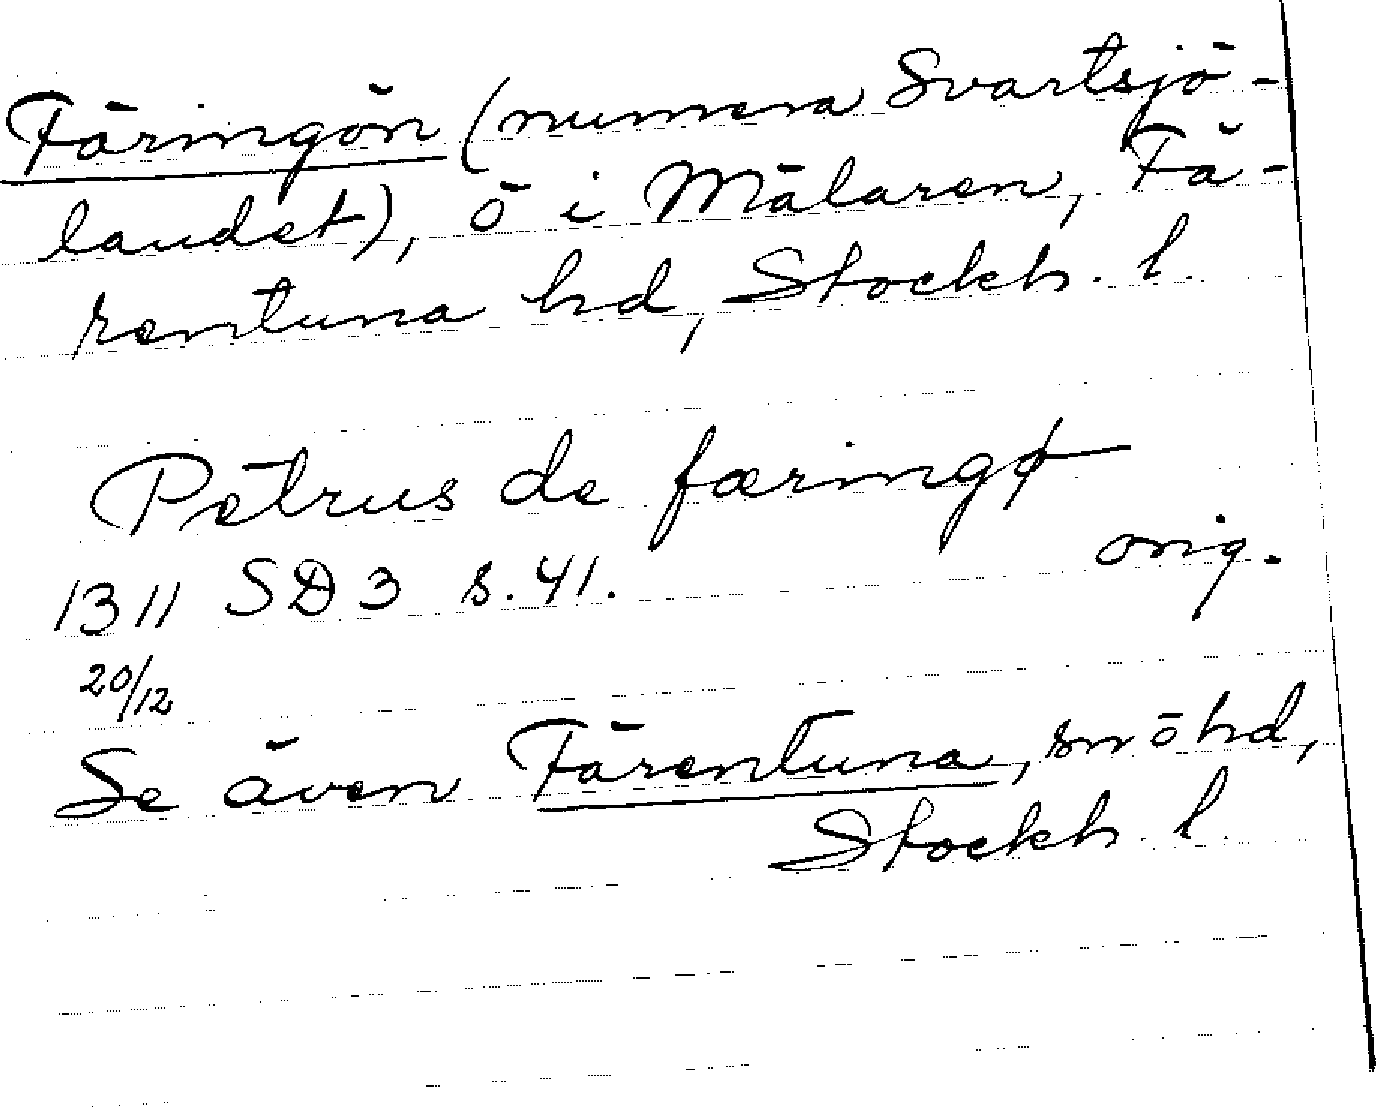 Färingön (numera Svartsjö-
landet), ö i Mälaren, Fä-
rentuna hd, Stockh. l.
Petrus de færingø
1311 SD 3 s. 41. orig.
20/12
Se även Färentuna, sn ö hd,
Stockh. l.